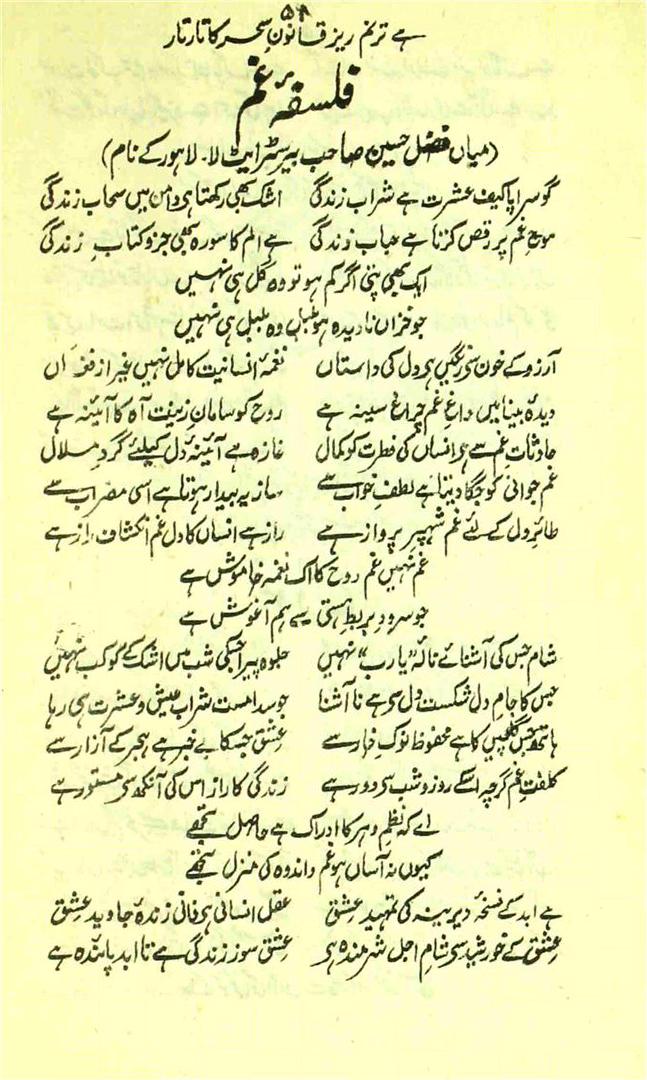 ۵۴
ہے ترنم ریز قانونِ سحر کا تار تار
فلسفۂ غم
(میاں فضل حسین صاحب بیرسٹر ایٹ لا۔ لاہور کے نام)
گو سراپا کیفِ عشرت ہے شرابِ زندگی اشک بھی رکھتا ہی دامن میں سحابِ زندگی
موجِ غم پر رقص کرتا ہے حبابِ زندگی ہے الم کا سورہ بھی جزوِ کتابِ زندگی
ایک بھی پتی اگر کم ہو تو وہ گل ہی نہیں
جو خزاں نادیدہ ہو بلبل وہ بلبل ہی نہیں
آرزو کے خون سی رنگیں ہی دل کی داستاں نغمۂ انسانیت کامل نہیں غیر از فغاں
دیدۂ بینا میں داغِ غم چراغِ سینہ ہے روح کو سامانِ زینت آہ کا آئینہ ہے
حادثاتِ غم سے ہی انساں کی فطرت کو کمال غازہ ہے آئینۂ دل کیلئے گردِ ملال
غم جوانی کو جگا دیتا ہے لطفِ خواب سے ساز یہ بیدار ہوتا ہے اسی مضراب سے
طائرِ دل کے لئے غم شہپرِ پرواز ہے راز ہے انساں کا دل غم انکشافِ راز ہے
غم نہیں غم روح کا اک نغمۂ خاموش ہے
جو سرودِ بربطِ ہستی سے ہم آغوش ہے
شام جس کی آشنائے نالۂ "یا رب" نہیں جلوہ پیرا جسکی شب میں اشک کے کوکب نہیں
جس کا جامِ دل شکستِ دل سی ہے نا آشنا جو سدا مستِ شرابِ عیش و عشرت ہی رہا
ہاتھ جس گلچیں کا ہے محفوظ نوکِ خار سے عشق جسکا بے خبر ہے ہجر کے آزار سے
کلفتِ غم گرچہ اسکے روز و شب سی دور ہے زندگی کا راز اس کی آنکھ سی مستور ہے
اے کہ نظمِ دہر کا ادراک ہے حاصل تجھے
کیوں نہ آساں ہو غم و اندوہ کی منزل تجھے
ہے ابد کے نسخۂ دیرینہ کی تمہید عشق عقلِ انسانی ہی فانی زندۂ جاوید عشق
عشق کے خورشید سی شامِ اجل شرمندہ ہی عشق سوزِ زندگی ہے تا ابد پائندہ ہے